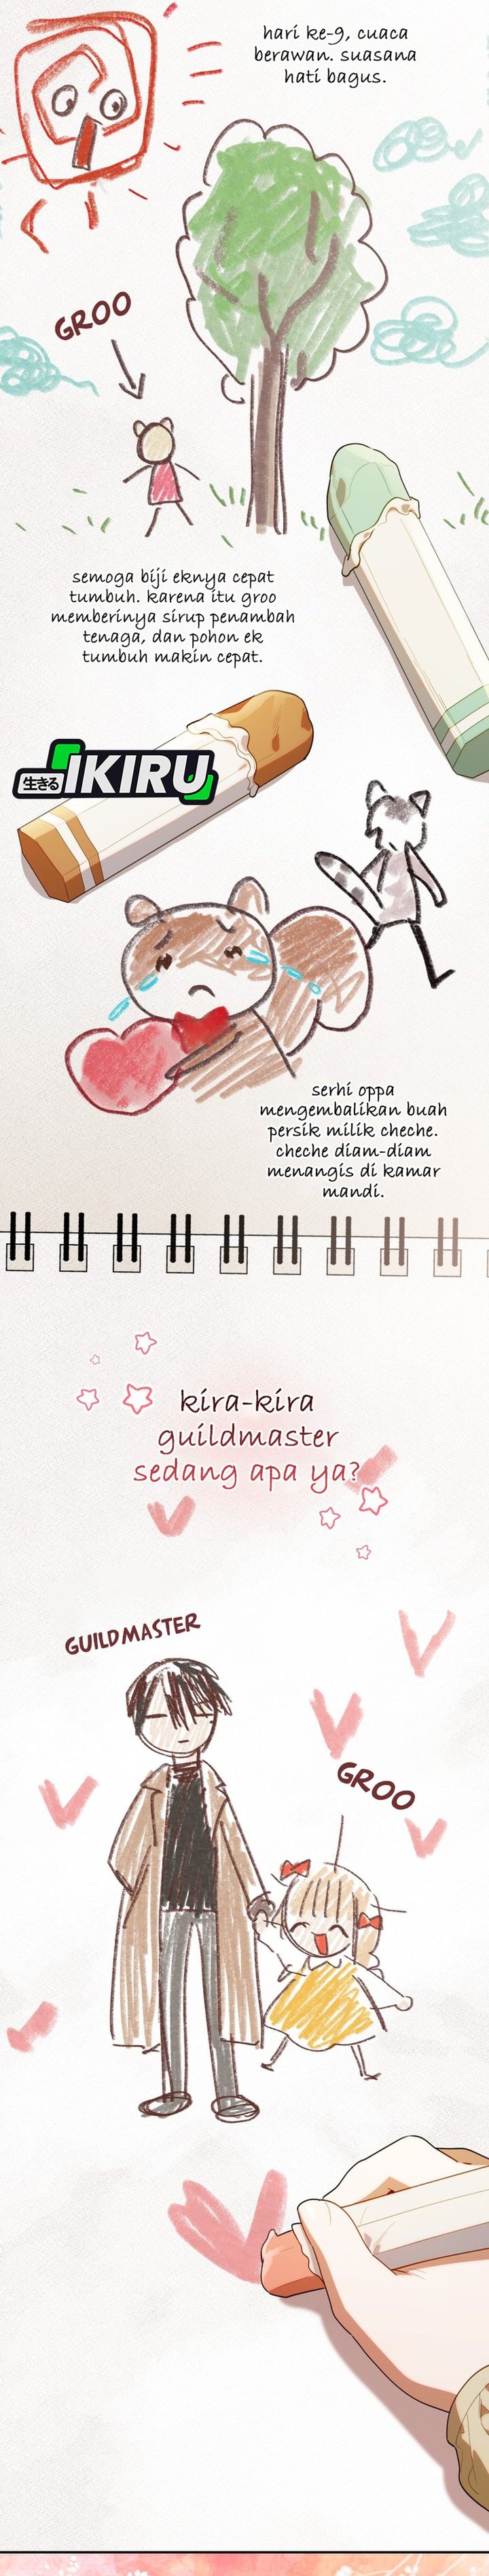 hari ke-9, cuaca
berawan. suasana
hati bagus.
GROO
semoga biji eknya cepat
tumbuh. karena itu groo
memberinya sirup penambah
tenaga, dan pohon ek
tumbuh makin cepat.
生きる IKIRU
serhi oppa
mengembalikan buah
persik milik cheche.
cheche diam-diam
menangis di kamar
mandi.
kira-kira
guildmaster
sedang apa ya?
GUILDMASTER
GROO